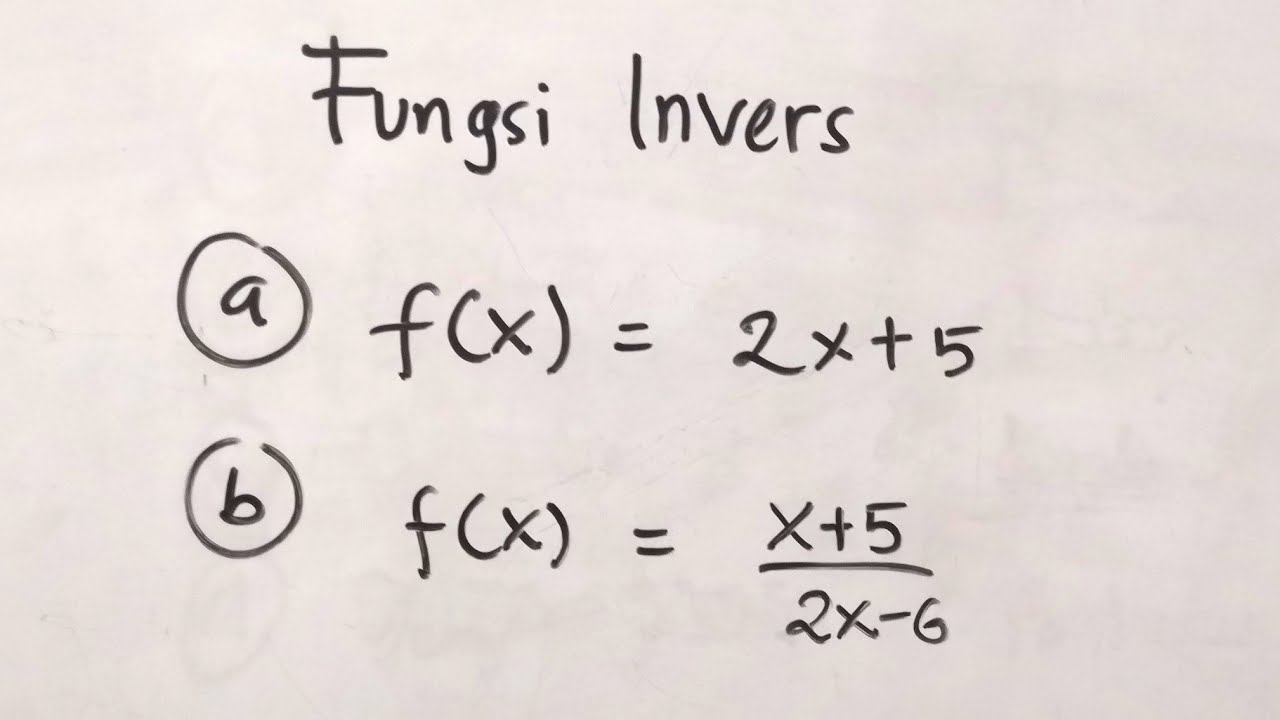 Fungsi Invers
a f(x) = 2x+5
b f(x) = x+5
2x-6